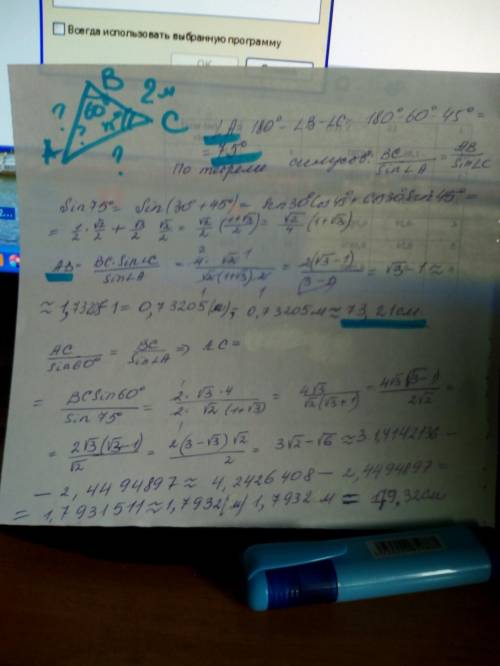 Всегда использовать выбранную программу
OK
B
2 м
60°
?
45°
C
A
?
?
∠A = 180° - ∠B - ∠C = 180° - 60° - 45° =
= 75°
По теореме синусов: BC/sin∠A = AB/sin∠C
Sin 75° = Sin(30° + 45°) = sin 30° cos 45° + cos 30° sin 45° =
= 1/2 · √2/2 + √3/2 · √2/2 = √2/2 (1+√3/2) = √2/4 (1+√3)
AB = BC·sin∠C/sin∠A = = 2(√3-1)/(3-1) = √3-1 ≈
≈ 1,73205-1 = 0,73205(м); 0,73205 м ≈ 73,21 см
AC/sin60° = BC/sin∠A ⇒ AC =
= BC sin60°/sin 75° = 2·√3·4/2·√2(1+√3) = 4√3/√2(√3+1) = 4√3(√3-1)/2√2 =
= 2√3(√3-1)/√2 = 2(3-√3)√2/2 = 3√2-√6 ≈ 3·1,4142136 -
- 2,4494897 ≈ 4,2426408 - 2,4494897 =
= 1,7931511 ≈ 1,7932(м) 1,7932 м = 179,32 см